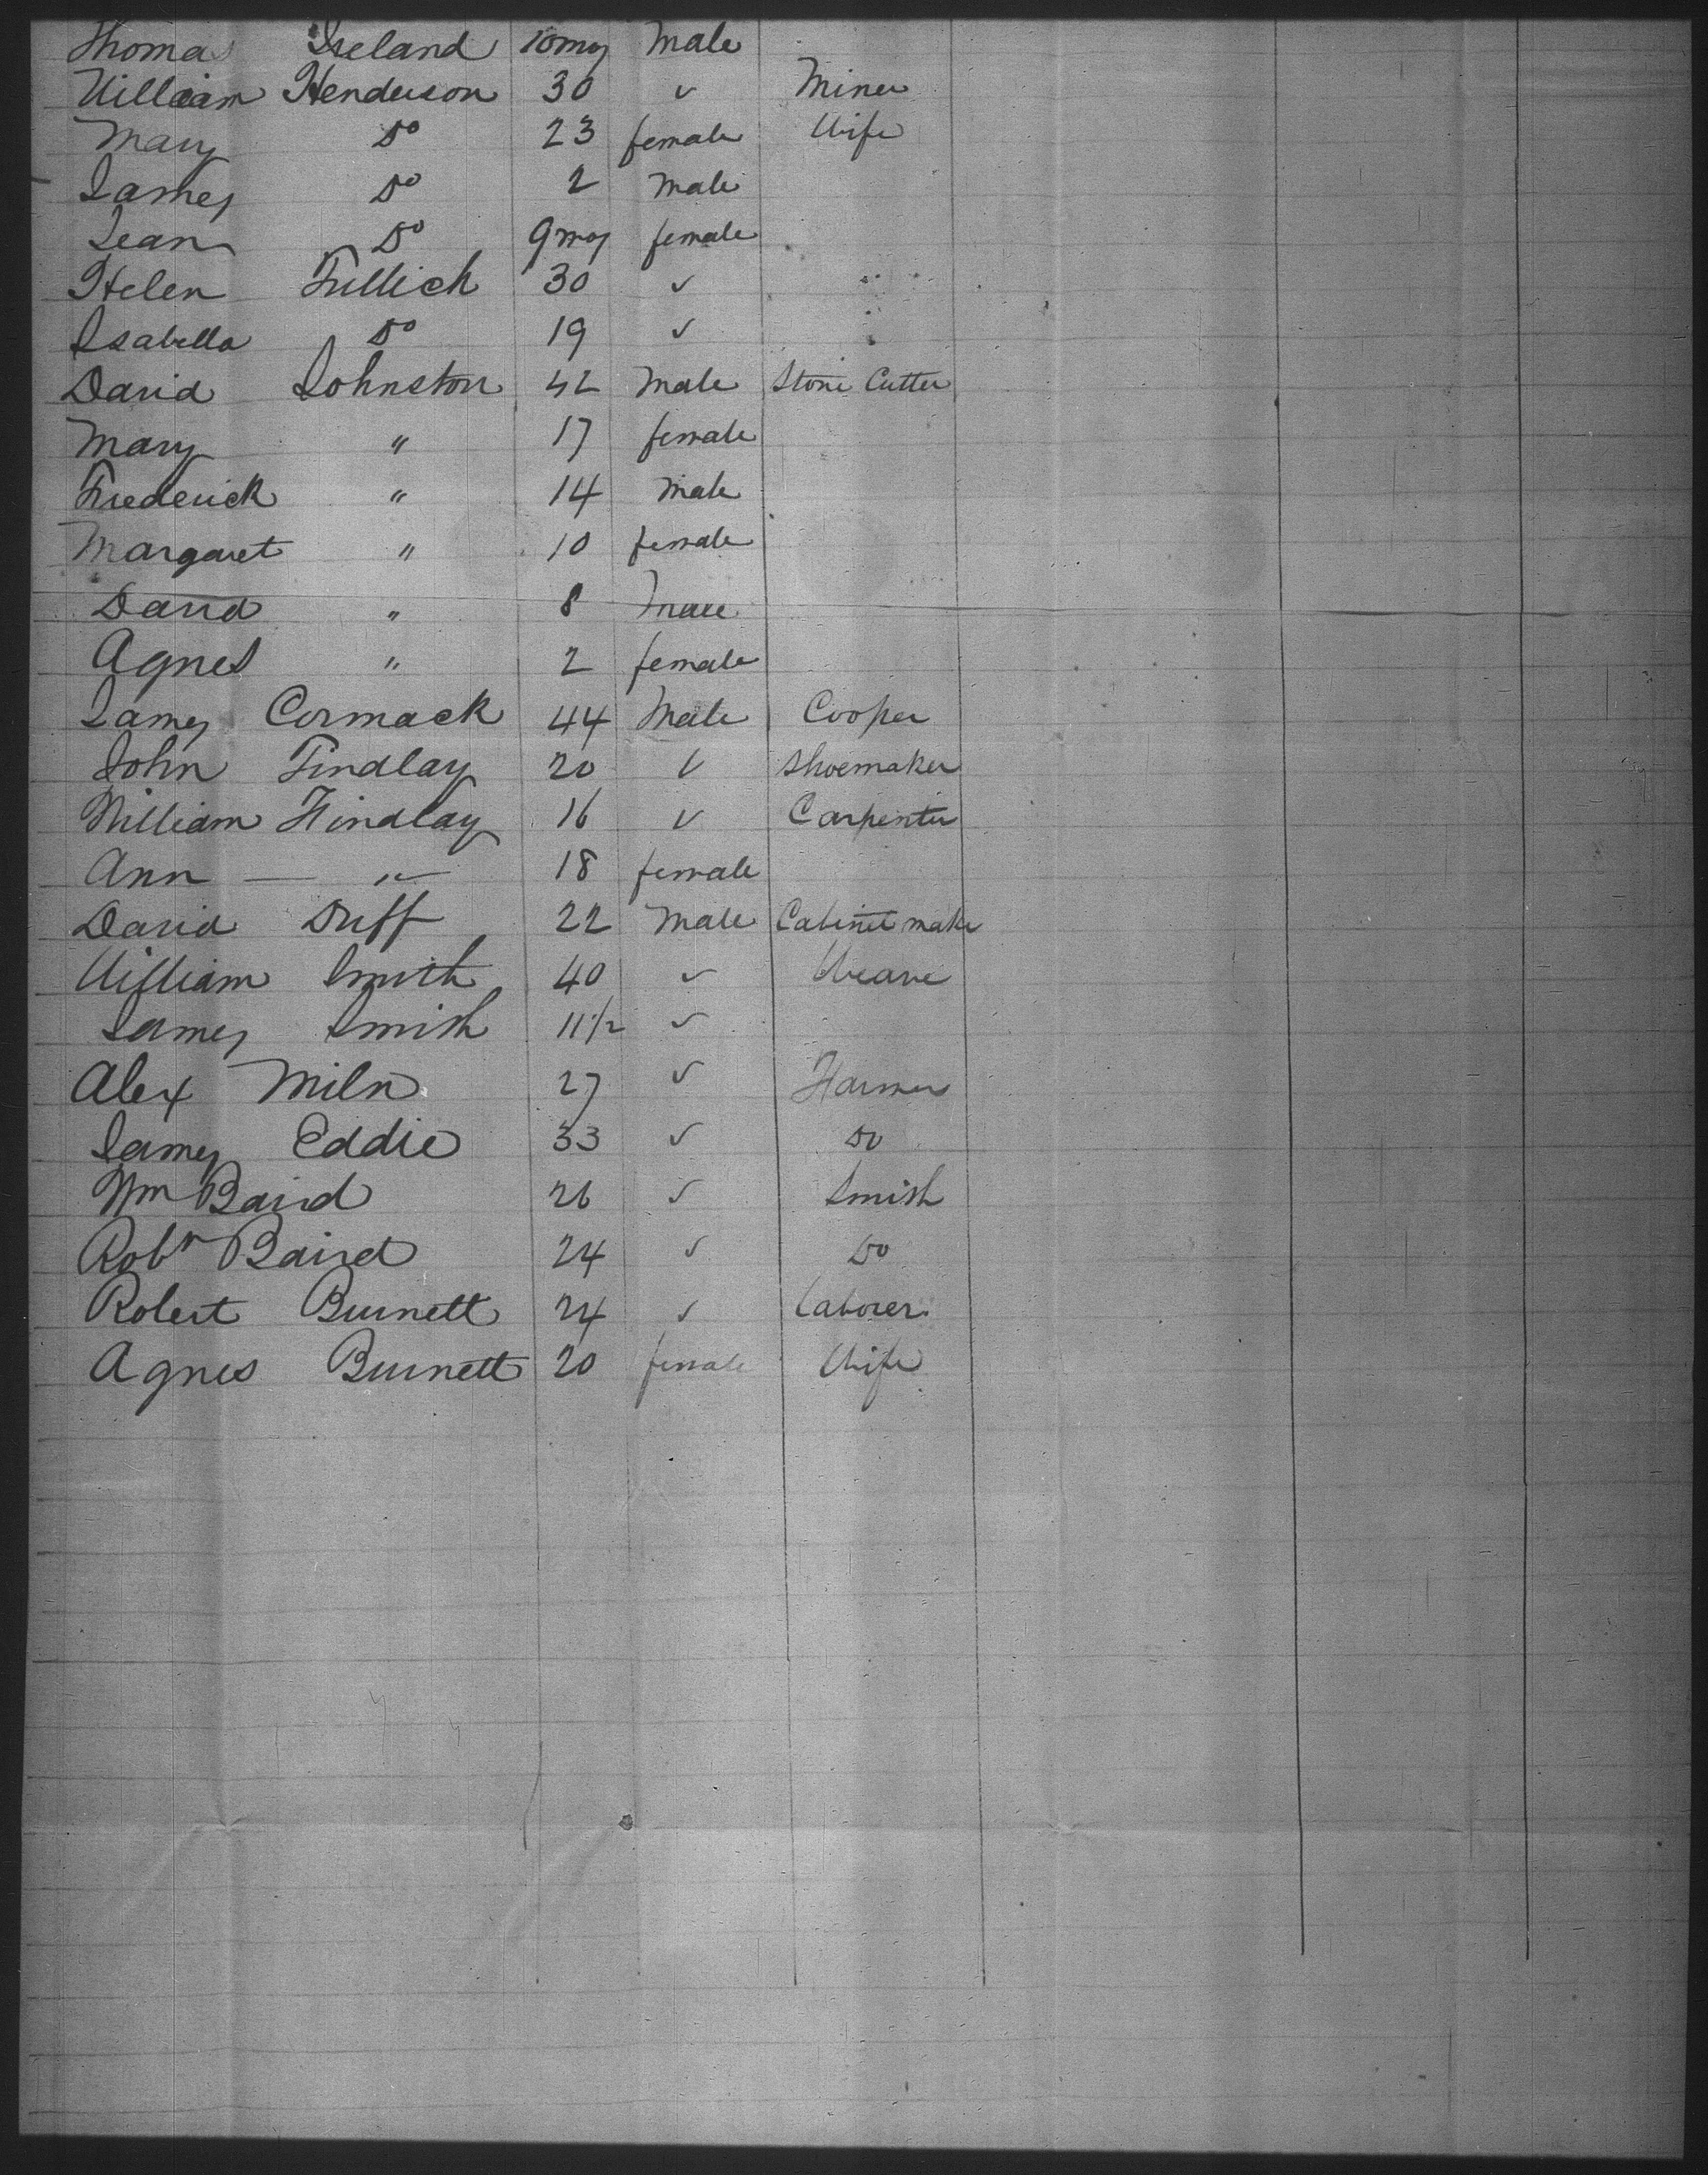 Thomas Ireland 10mos Male
William Henderson 30 " Miner
Mary Do 23 female Wife
James Do 2 Male
Jean Do 9mos female
Helen Fullich 30 "
Isabella Do 19 "
David Johnston 42 Male Stone Cutter
Mary " 17 female
Frederick " 14 Male
Margaret " 10 female
David " 8 Male
Agnes " 2 female
James Cormack 44 Male Cooper
John Findlay 20 " Shoemaker
William Findlay 16 " Carpenter
Ann — " — 18 female
David Duff 22 Male Cabinet maker
William Smith 40 " Weaver
James Smith 11 1/2 "
Alex Miln 27 " Farmer
James Eddie 33 " Do
Wm Baird 26 " Smith
Robt Baird 24 " Do
Robert Burnett 24 " Laborer
Agnes Burnett 20 female Wife